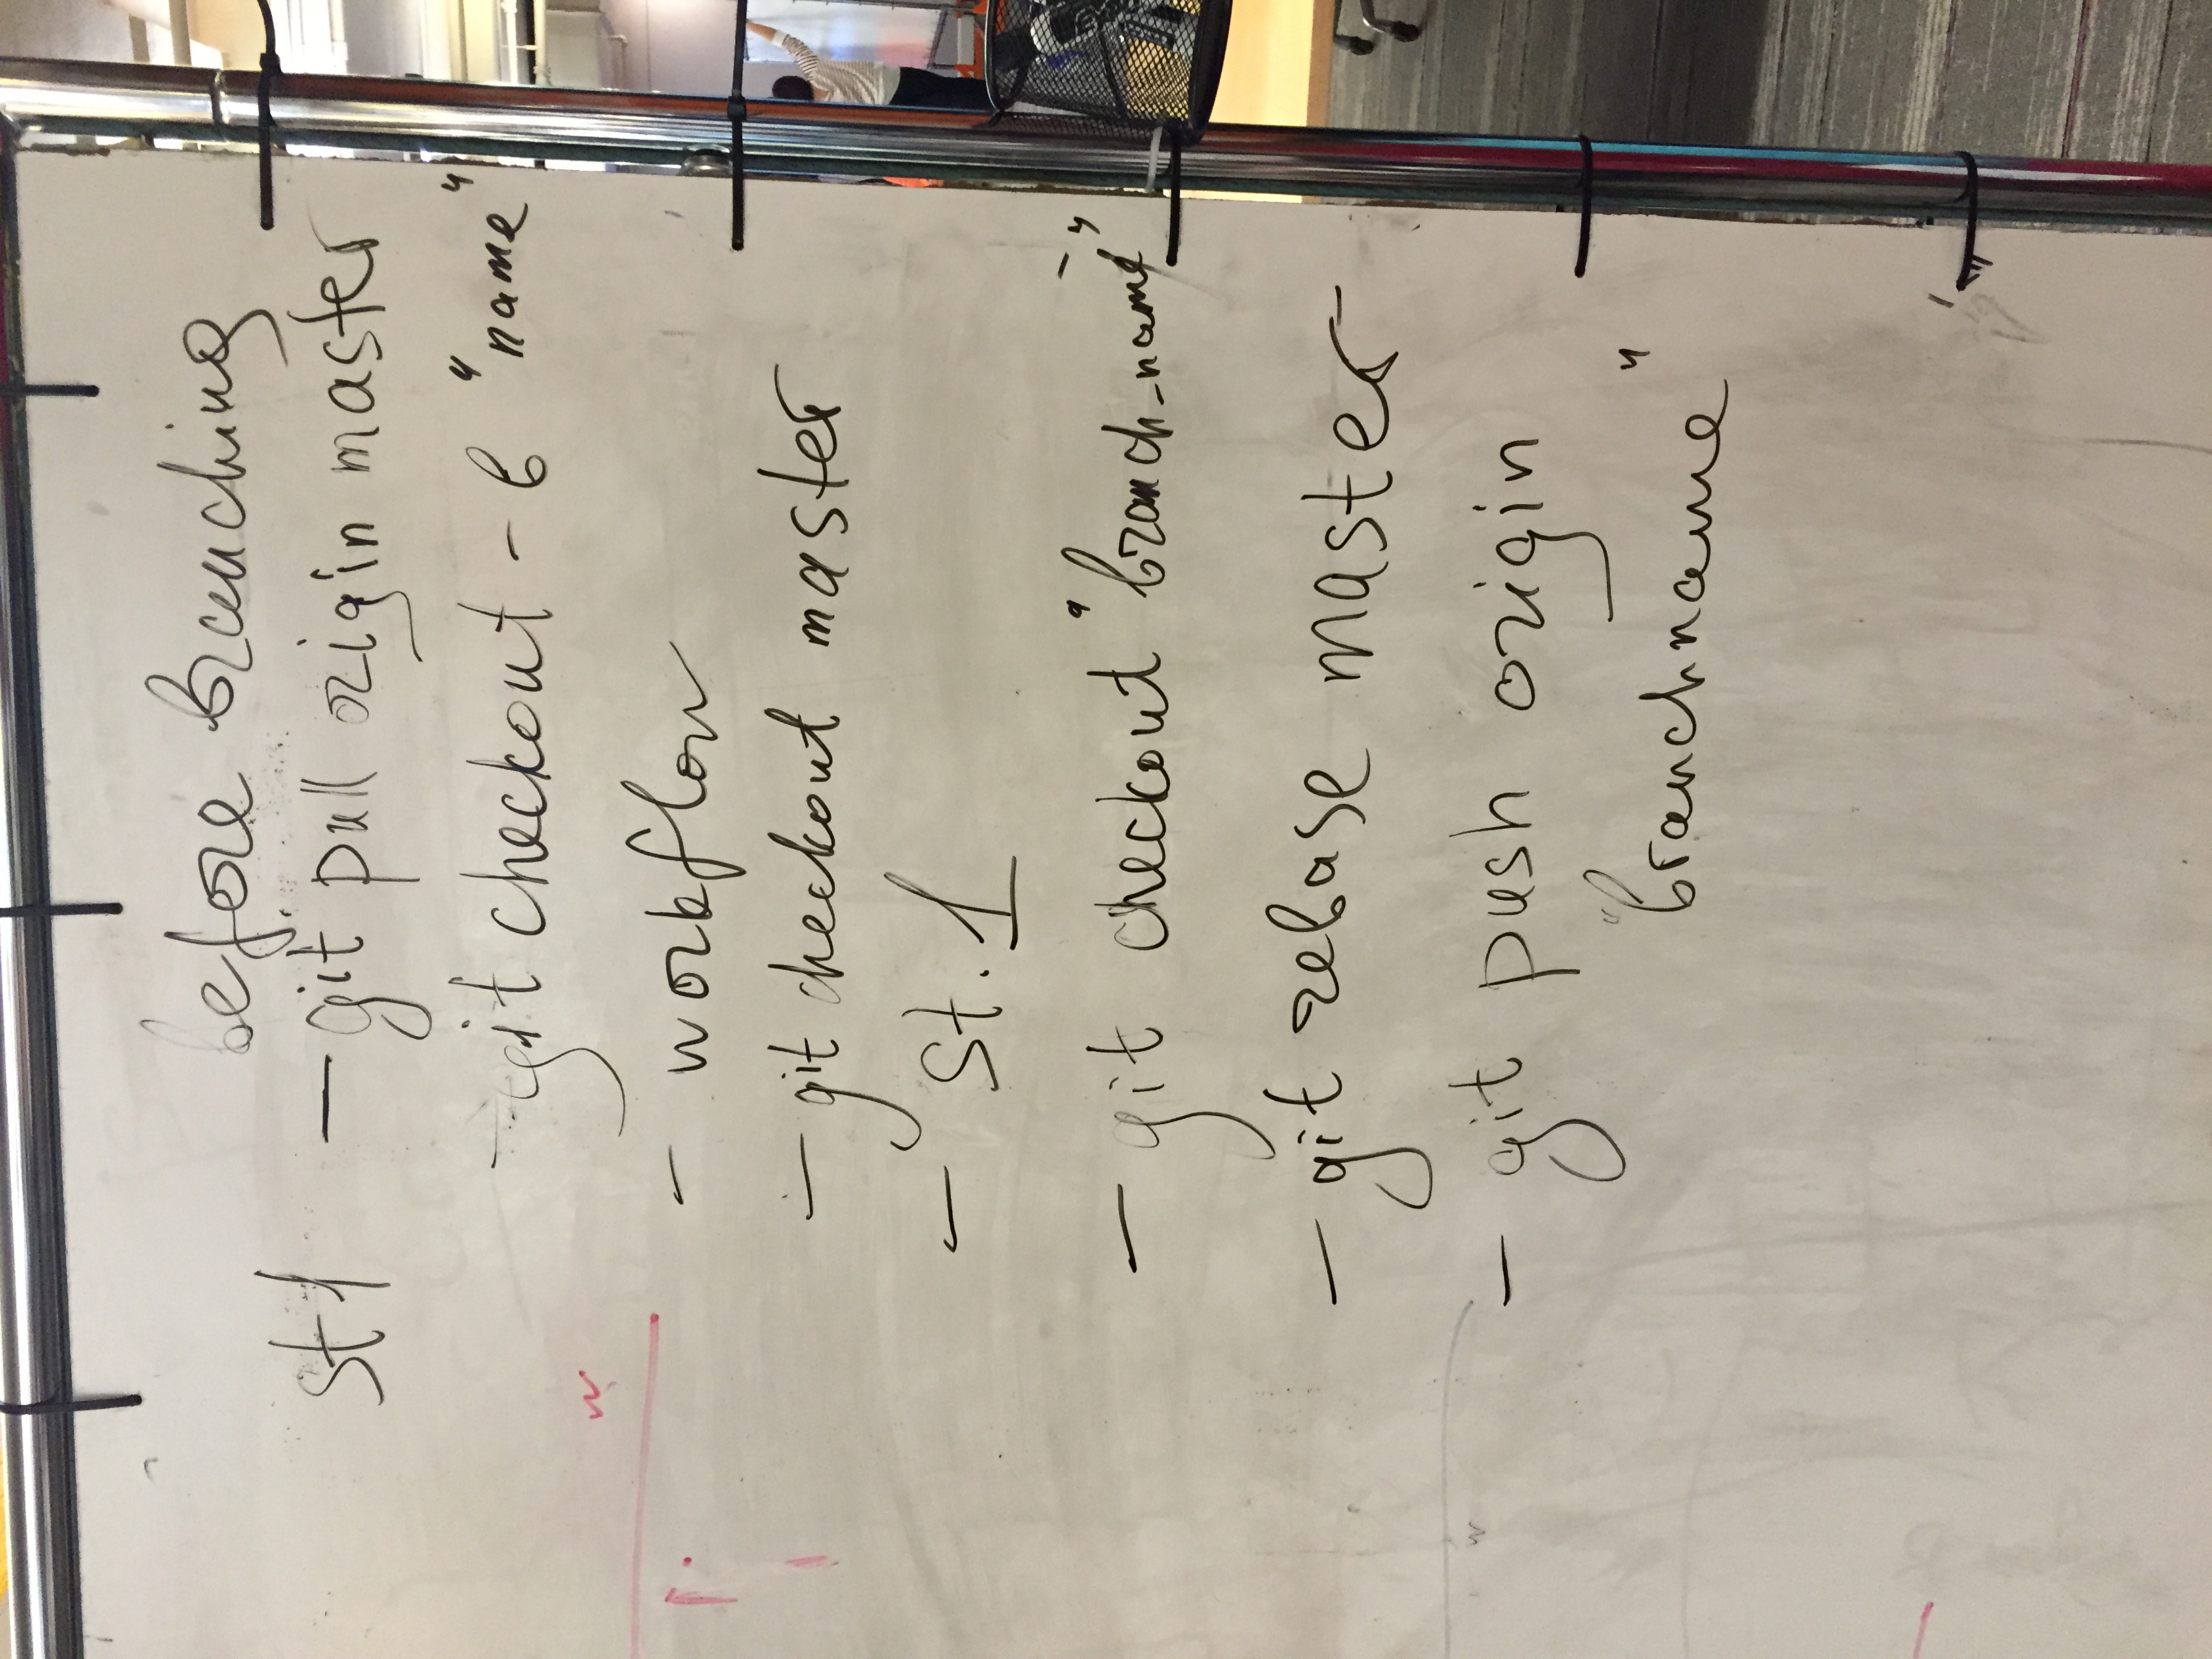 before branching
st 1 — git pull origin master
- git checkout -b "name"
- workflow
- git checkout master
- St. 1
- git checkout "branch_name"
- git rebase master
- git push origin
"branchname"